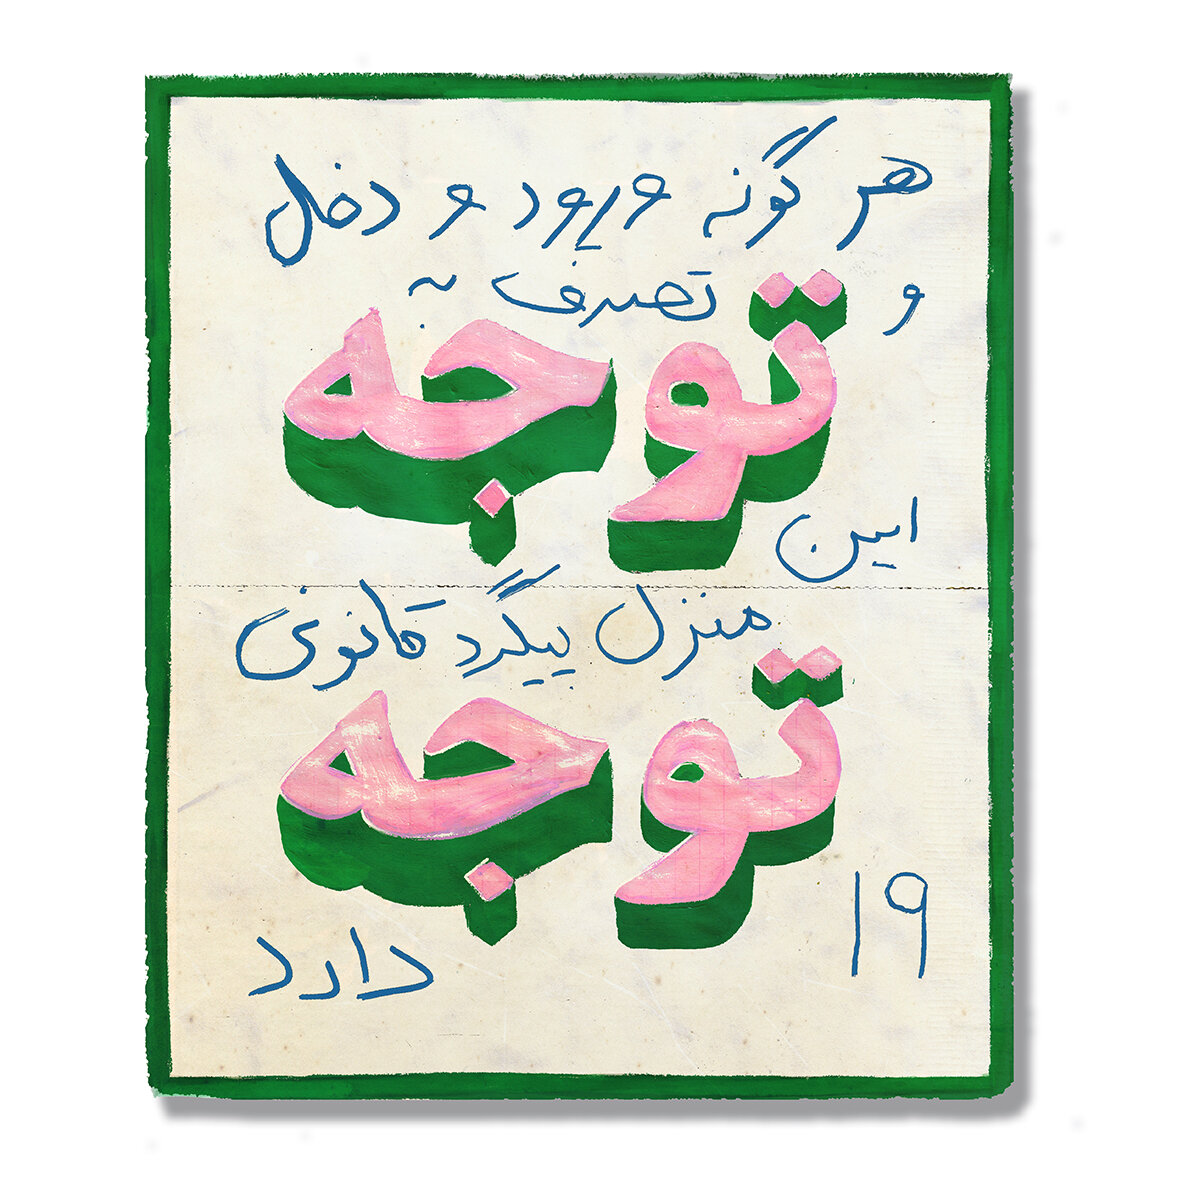 هر گونه ورود و دخل
و تصرف به
توجه
این
منزل پیگرد قانونی
توجه
۱۹
دارد